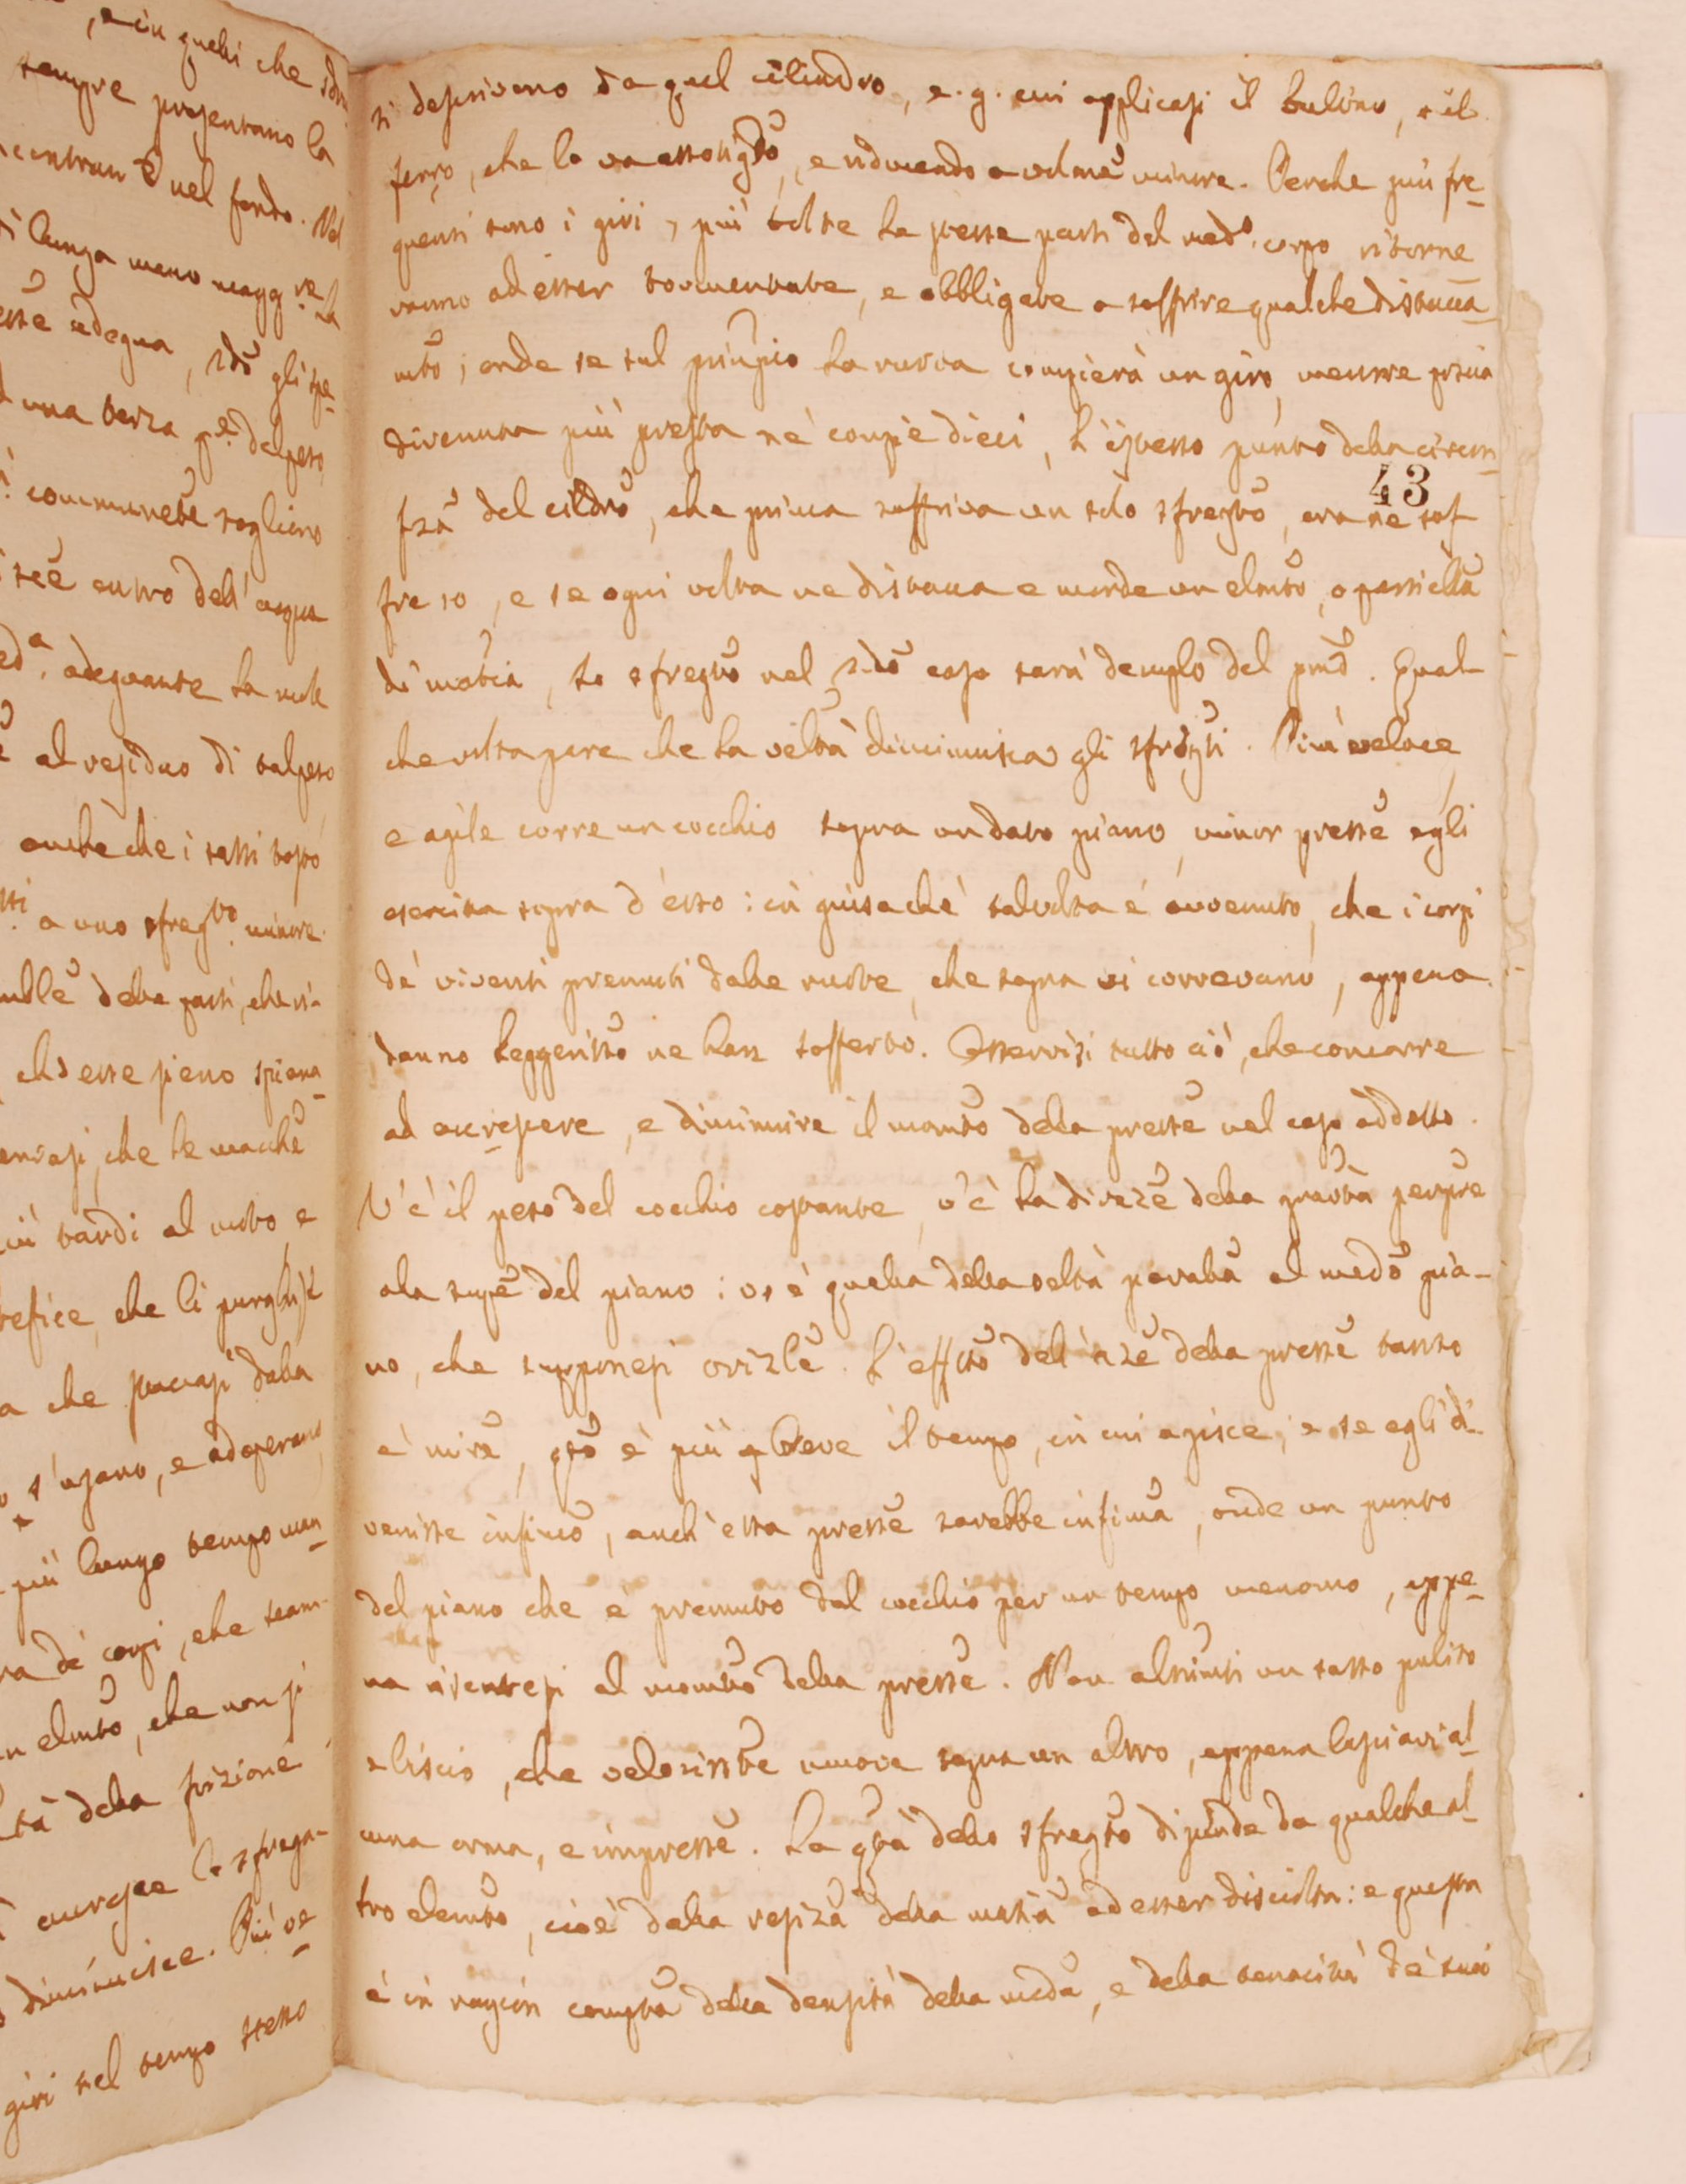 , e in quelli che
sempre presentano la
nel fondo. Nel
lunga meno magg.re la
adegua, gli spe-
una terza p.e del peso
communete sogliono
entro dell'acqua
ed.a adeguante la mole
al residuo di tal peso
anche che i sassi
a uno sfreg.to minore
delle parti, che ri-
esse sieno spiana-
che le macchē
tardi al moto e
refice, che li purghi
a che facciasi dalla
s'usano, e adoperano
più lungo tempo man-
ra de' corpi, che scam-
n elmtō, che non si
tà della frizione
accresce lo sfrega-
diminuisce. Più ve-
giri nel tempo stesso
si descrivono da quel cilindro, e.g. cui applicasi il bulino, e il
ferro, che lo va assotigdō, e riducendo a volmē minore. Perche più fre-
quenti sono i giri, più volte le stesse parti del med.o corpo ritorne-
ranno ad esser tormentate, e obbligate a soffrire qualche distacca-
mtō; onde se sul principio la ruota compierà un giro, mentre poscia
divenuta più presta ne compiè dieci, l'istesso punto della circum-
fzā del cildrō, che prima soffriva un solo sfregtō, ora ne sof-
fre 10, e se ogni volta ne distacca e morde un elmtō, o particellā
di matiā, lo sfregtō nel 2.dō caso sarà decuplo del pmō. Qual-
che volta pare che la veltà diminuisca gli sfregti. Più veloce,
e agile corre un cocchio sopra un dato piano, minor pressē egli
esercita sopra d'esso: in guisa che talvolta è avvenuto, che i corpi
de' viventi premuti dalle ruote, che sopra vi correvano, appena
danno leggerissō ne han sofferto. Osservisi tutto ciò, che concorre
ad accrescere, e diminuire il momtō della pressē nel caso addotto.
V'è il peso del cocchio costante, v'è la direzē della gravtà perpre
alla supē del piano: vi è quella della veltà parallā al medō pia-
no, che supponesi orizlē. L'effttō dell'azē della pressē tanto
è mirē, qtō è più breve il tempo, in cui agisce; e se egli di-
venisse infimō, anch'essa pressē sarebbe infimā, onde un punto
del piano che è premuto dal cocchio per un tempo menomo, appe-
na risentesi al momtō della pressē. Non altrimti un sasso pulito
e liscio, che velocissē muove sopra un altro, appena lasciavi al-
cuna orma, e impressē. La qtà dello sfregtō dipende da qualche al-
tro elemtō, cioè dalla resizā della matiā ad esser disciolta: e questa
è in ragion comptā della densità della medā, e della tenacità de' suoi
43